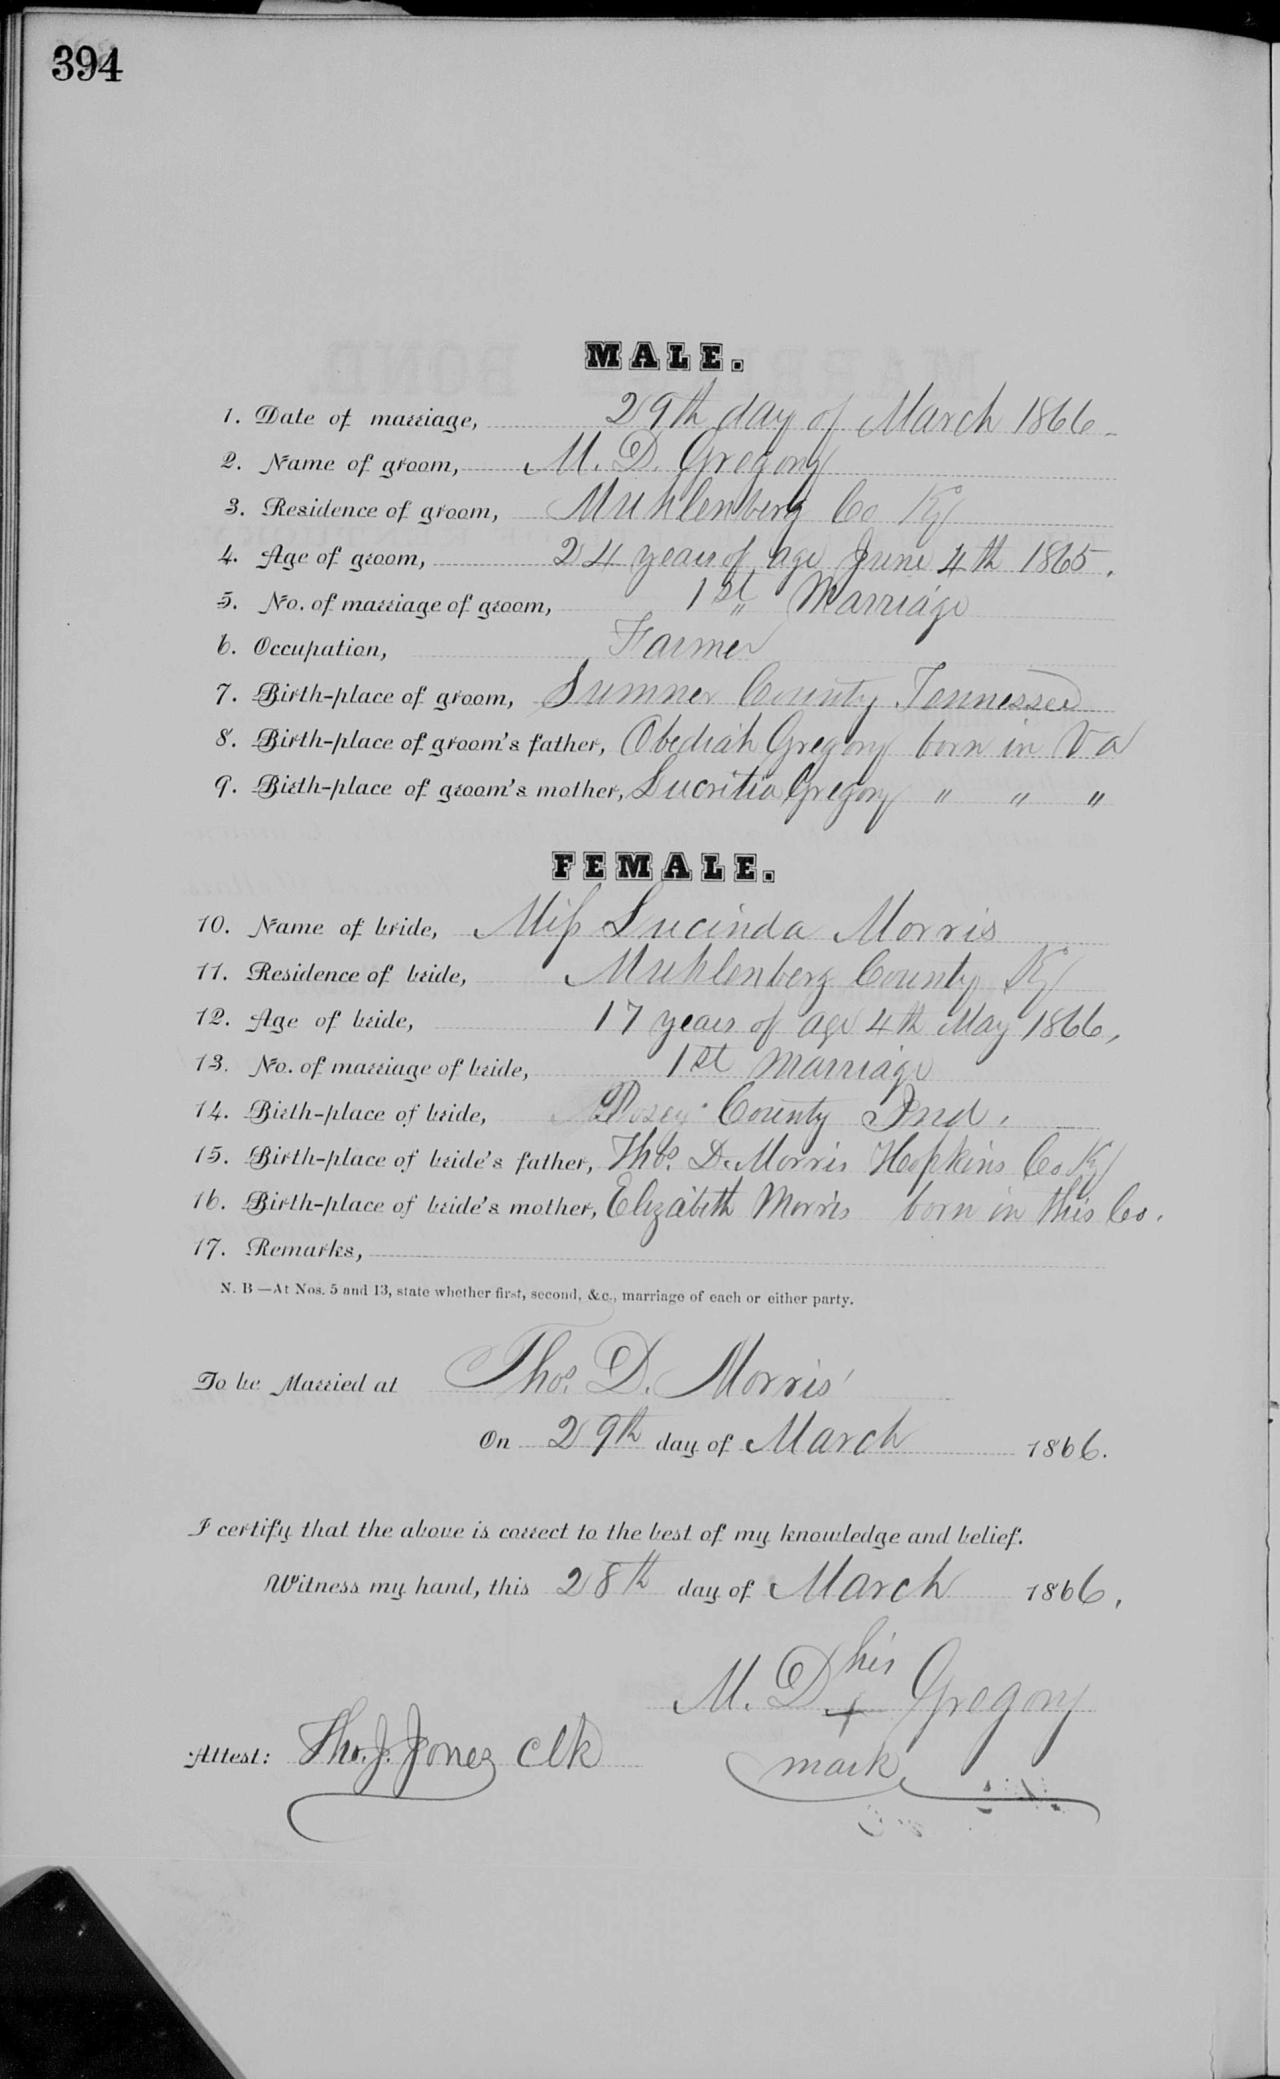 394
MALE.
1. Date of marriage, 29th day of March 1866
2. Name of groom, M. D. Gregory
3. Residence of groom, Muhlenberg Co Ky
4. Age of groom, 24 years of age June 4th 1865.
5. No. of marriage of groom, 1st Marriage
6. Occupation, Farmer
7. Birth-place of groom, Sumner County Tennessee
8. Birth-place of groom's father, Obediah Gregory born in Va
9. Birth-place of groom's mother, Lucritia Gregory " " "
FEMALE.
10. Name of bride, Miss Lucinda Morris
11. Residence of bride, Muhlenberg County Ky
12. Age of bride, 17 years of age 4th May 1866,
13. No. of marriage of bride, 1st Marriage
14. Birth-place of bride, Posey County Ind.
15. Birth-place of bride's father, Thos. D. Morris Hopkins Co Ky
16. Birth-place of bride's mother, Elizabeth Morris born in this Co.
17. Remarks,
N. B—At Nos. 5 and 13, state whether first, second, &c., marriage of each or either party.
To be Married at Thos. D. Morris'
On 29th day of March 1866.
I certify that the above is correct to the best of my knowledge and belief.
Witness my hand, this 28th day of March 1866,
his
M. D. + Gregory
mark
Attest: Tho. J. Jones Clk